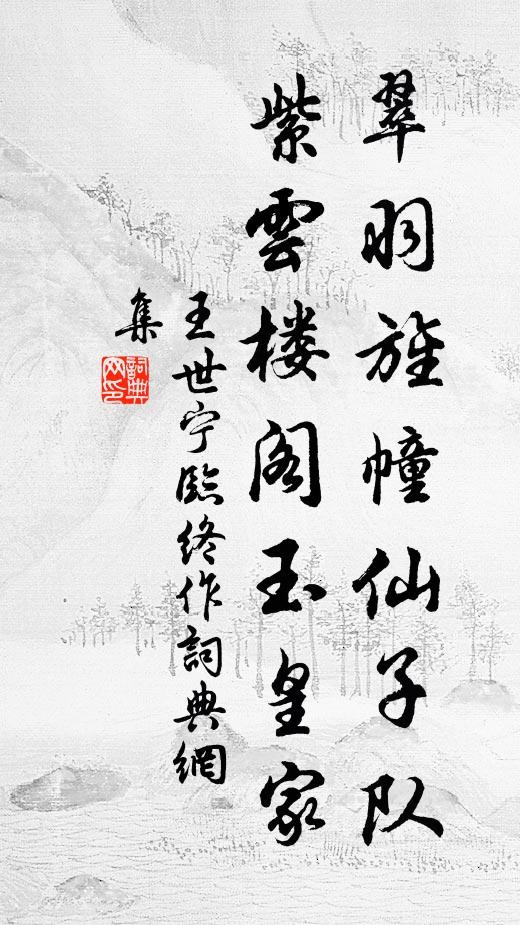 翠羽旌幢仙子队
紫雲楼阁玉皇家
王世宁臨终作詞典網
集
詞典网印